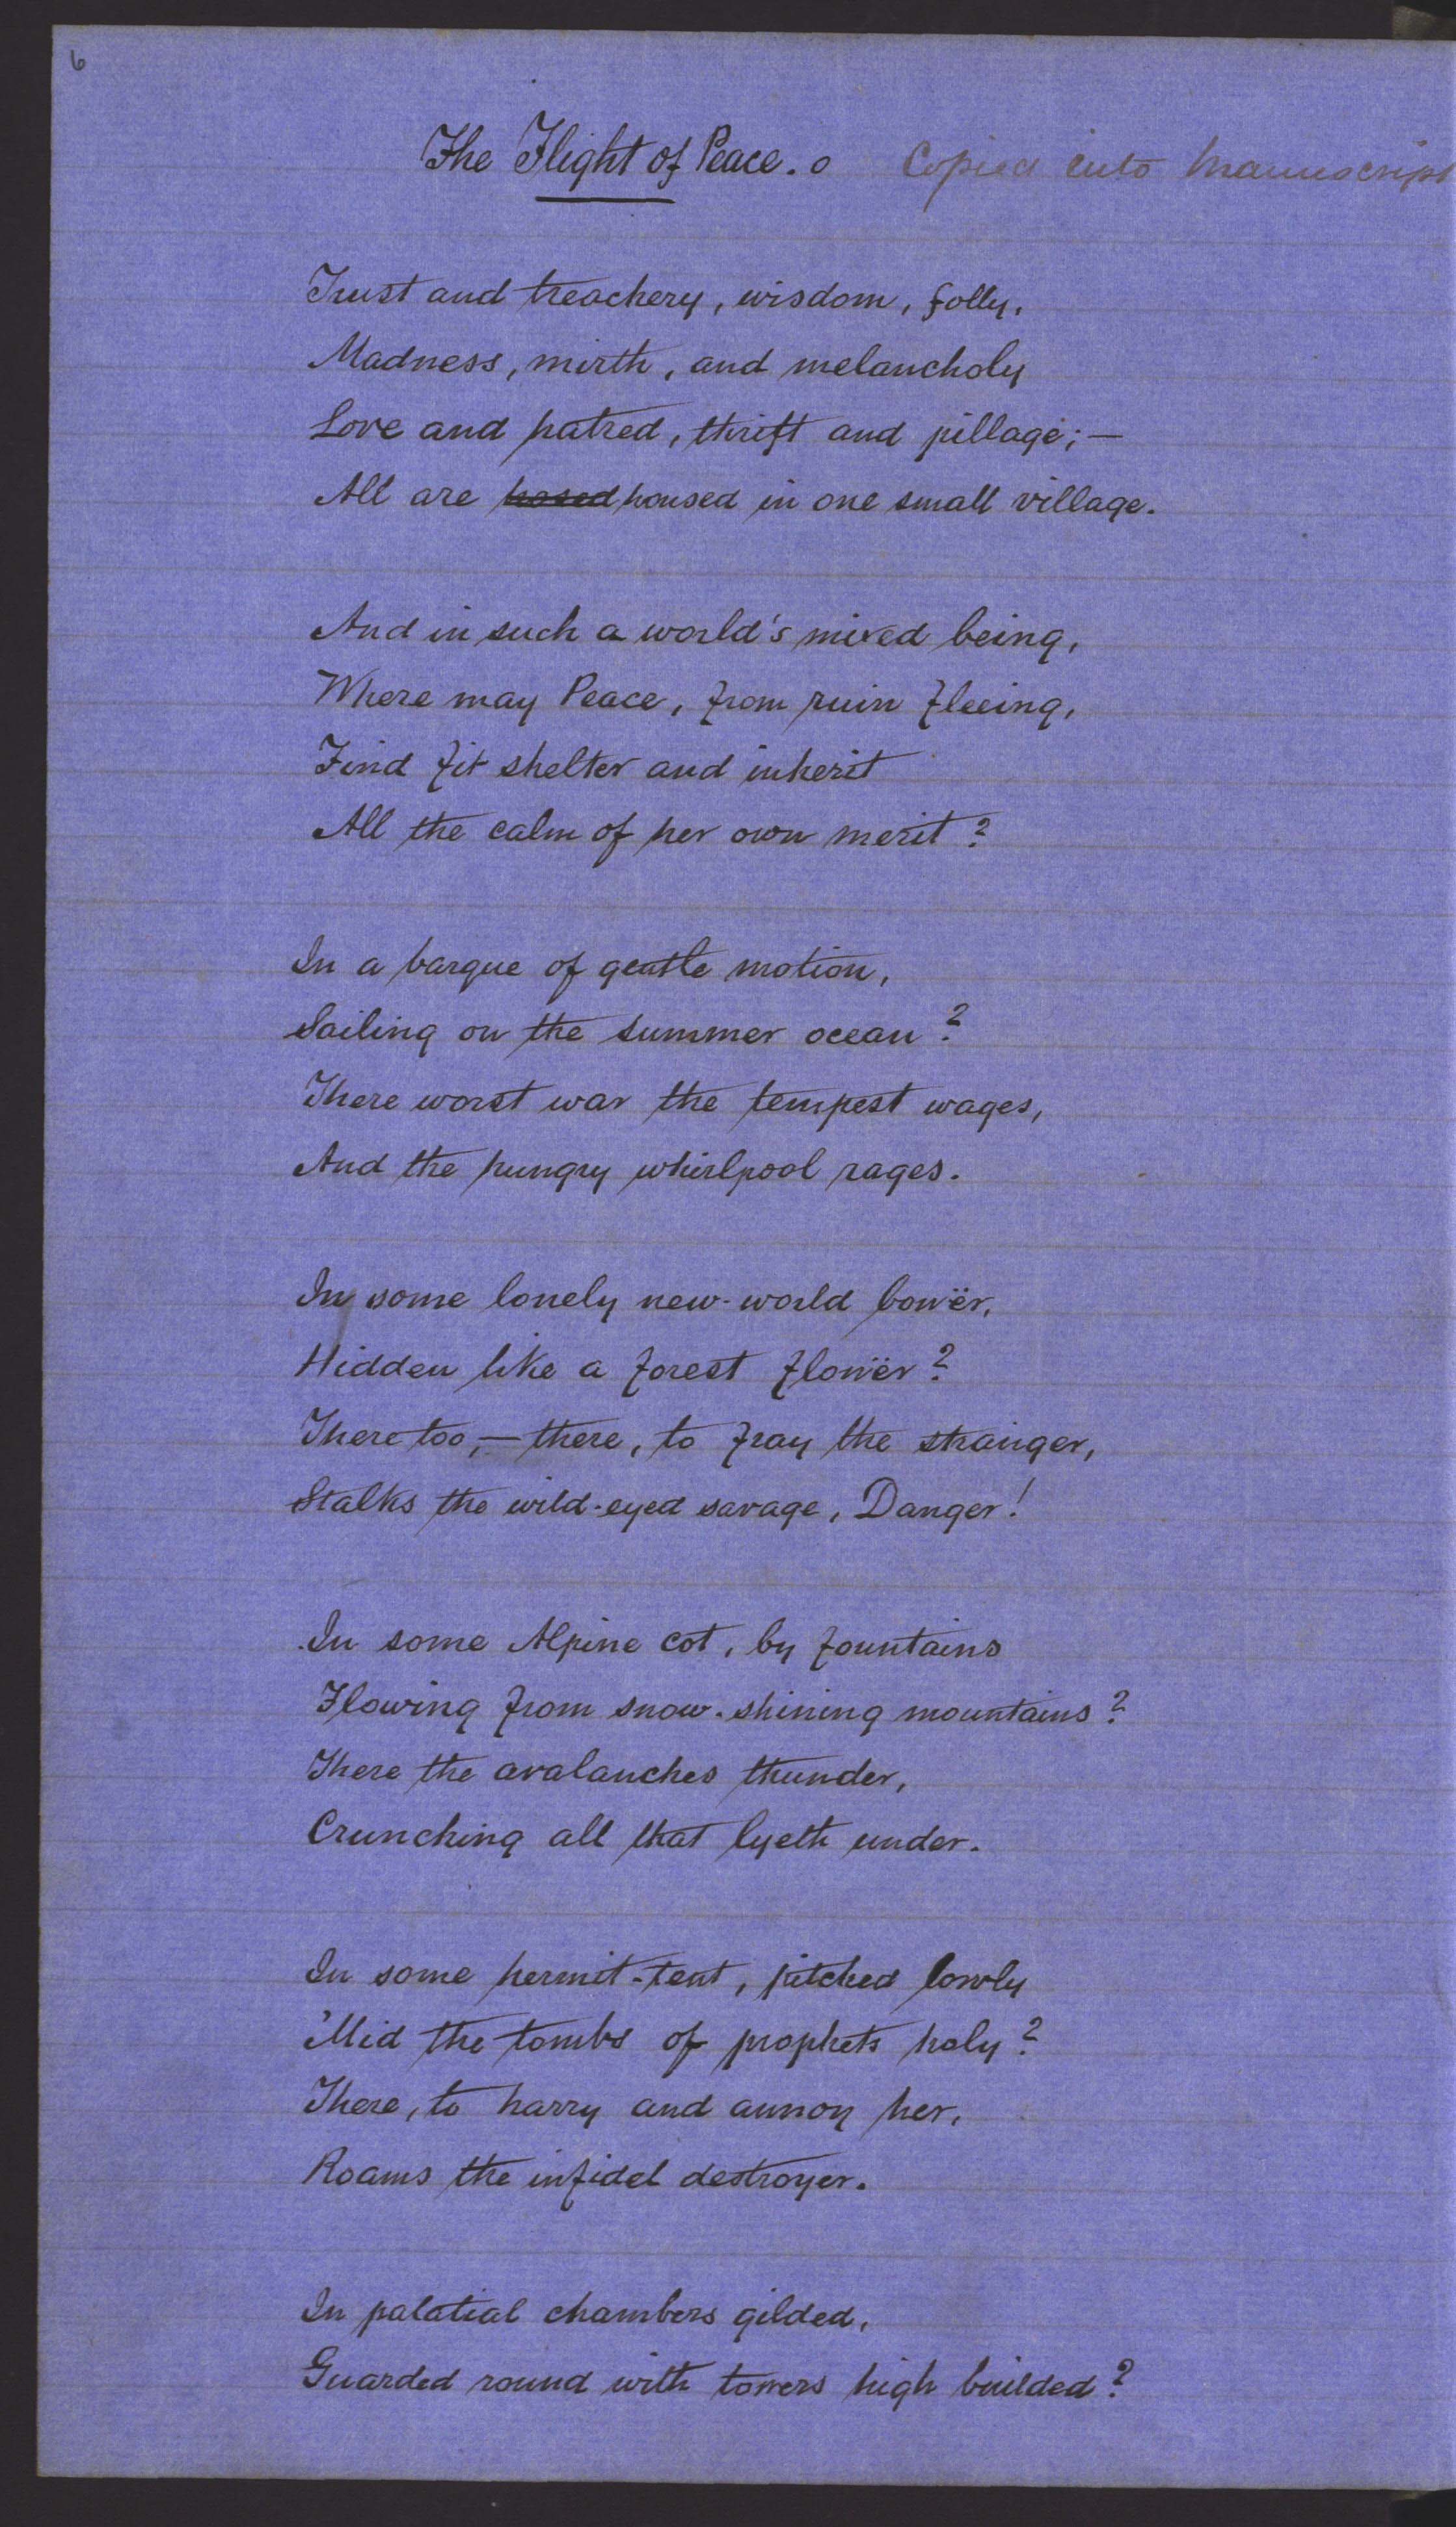 6
The Flight of Peace. o Copied into Manuscript
Trust and treachery, wisdom, folly,
Madness, mirth, and melancholy
Love and hatred, thrift and pillage; —
All are hosed housed in one small village.
And in such a world's mixed being,
Where may Peace, from ruin fleeing,
Find fit shelter and inherit
All the calm of her own merit?
In a barque of gentle motion,
Sailing on the summer ocean?
There worst war the tempest wages,
And the hungry whirlpool rages.
In some lonely new-world bowër,
Hidden like a forest flowër?
There too, — there, to fray the stranger,
Stalks the wild-eyed savage, Danger!
In some Alpine cot, by fountains
Flowing from snow-shining mountains?
There the avalanches thunder,
Crunching all that lyeth under.
In some hermit-tent, pitched lowly
'Mid the tombs of prophets holy?
There, to harry and annoy her,
Roams the infidel destroyer.
In palatial chambers gilded,
Guarded round with towers high builded?